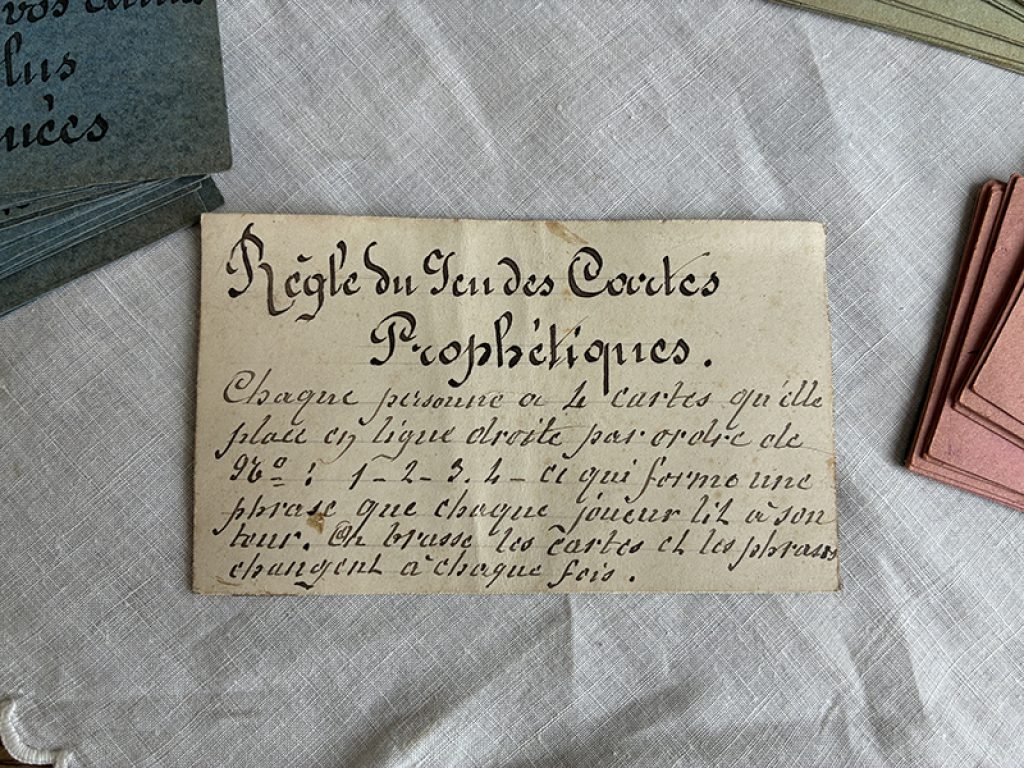 vos
lus
uées
Règle du Jeu des Cartes
Prophétiques.
Chaque personne a 4 cartes qu'elle
place en ligne droite par ordre de
Nº : 1 - 2 - 3. 4 - ce qui forme une
phrase que chaque joueur lit à son
tour. On brasse les cartes et les phrases
changent à chaque fois.